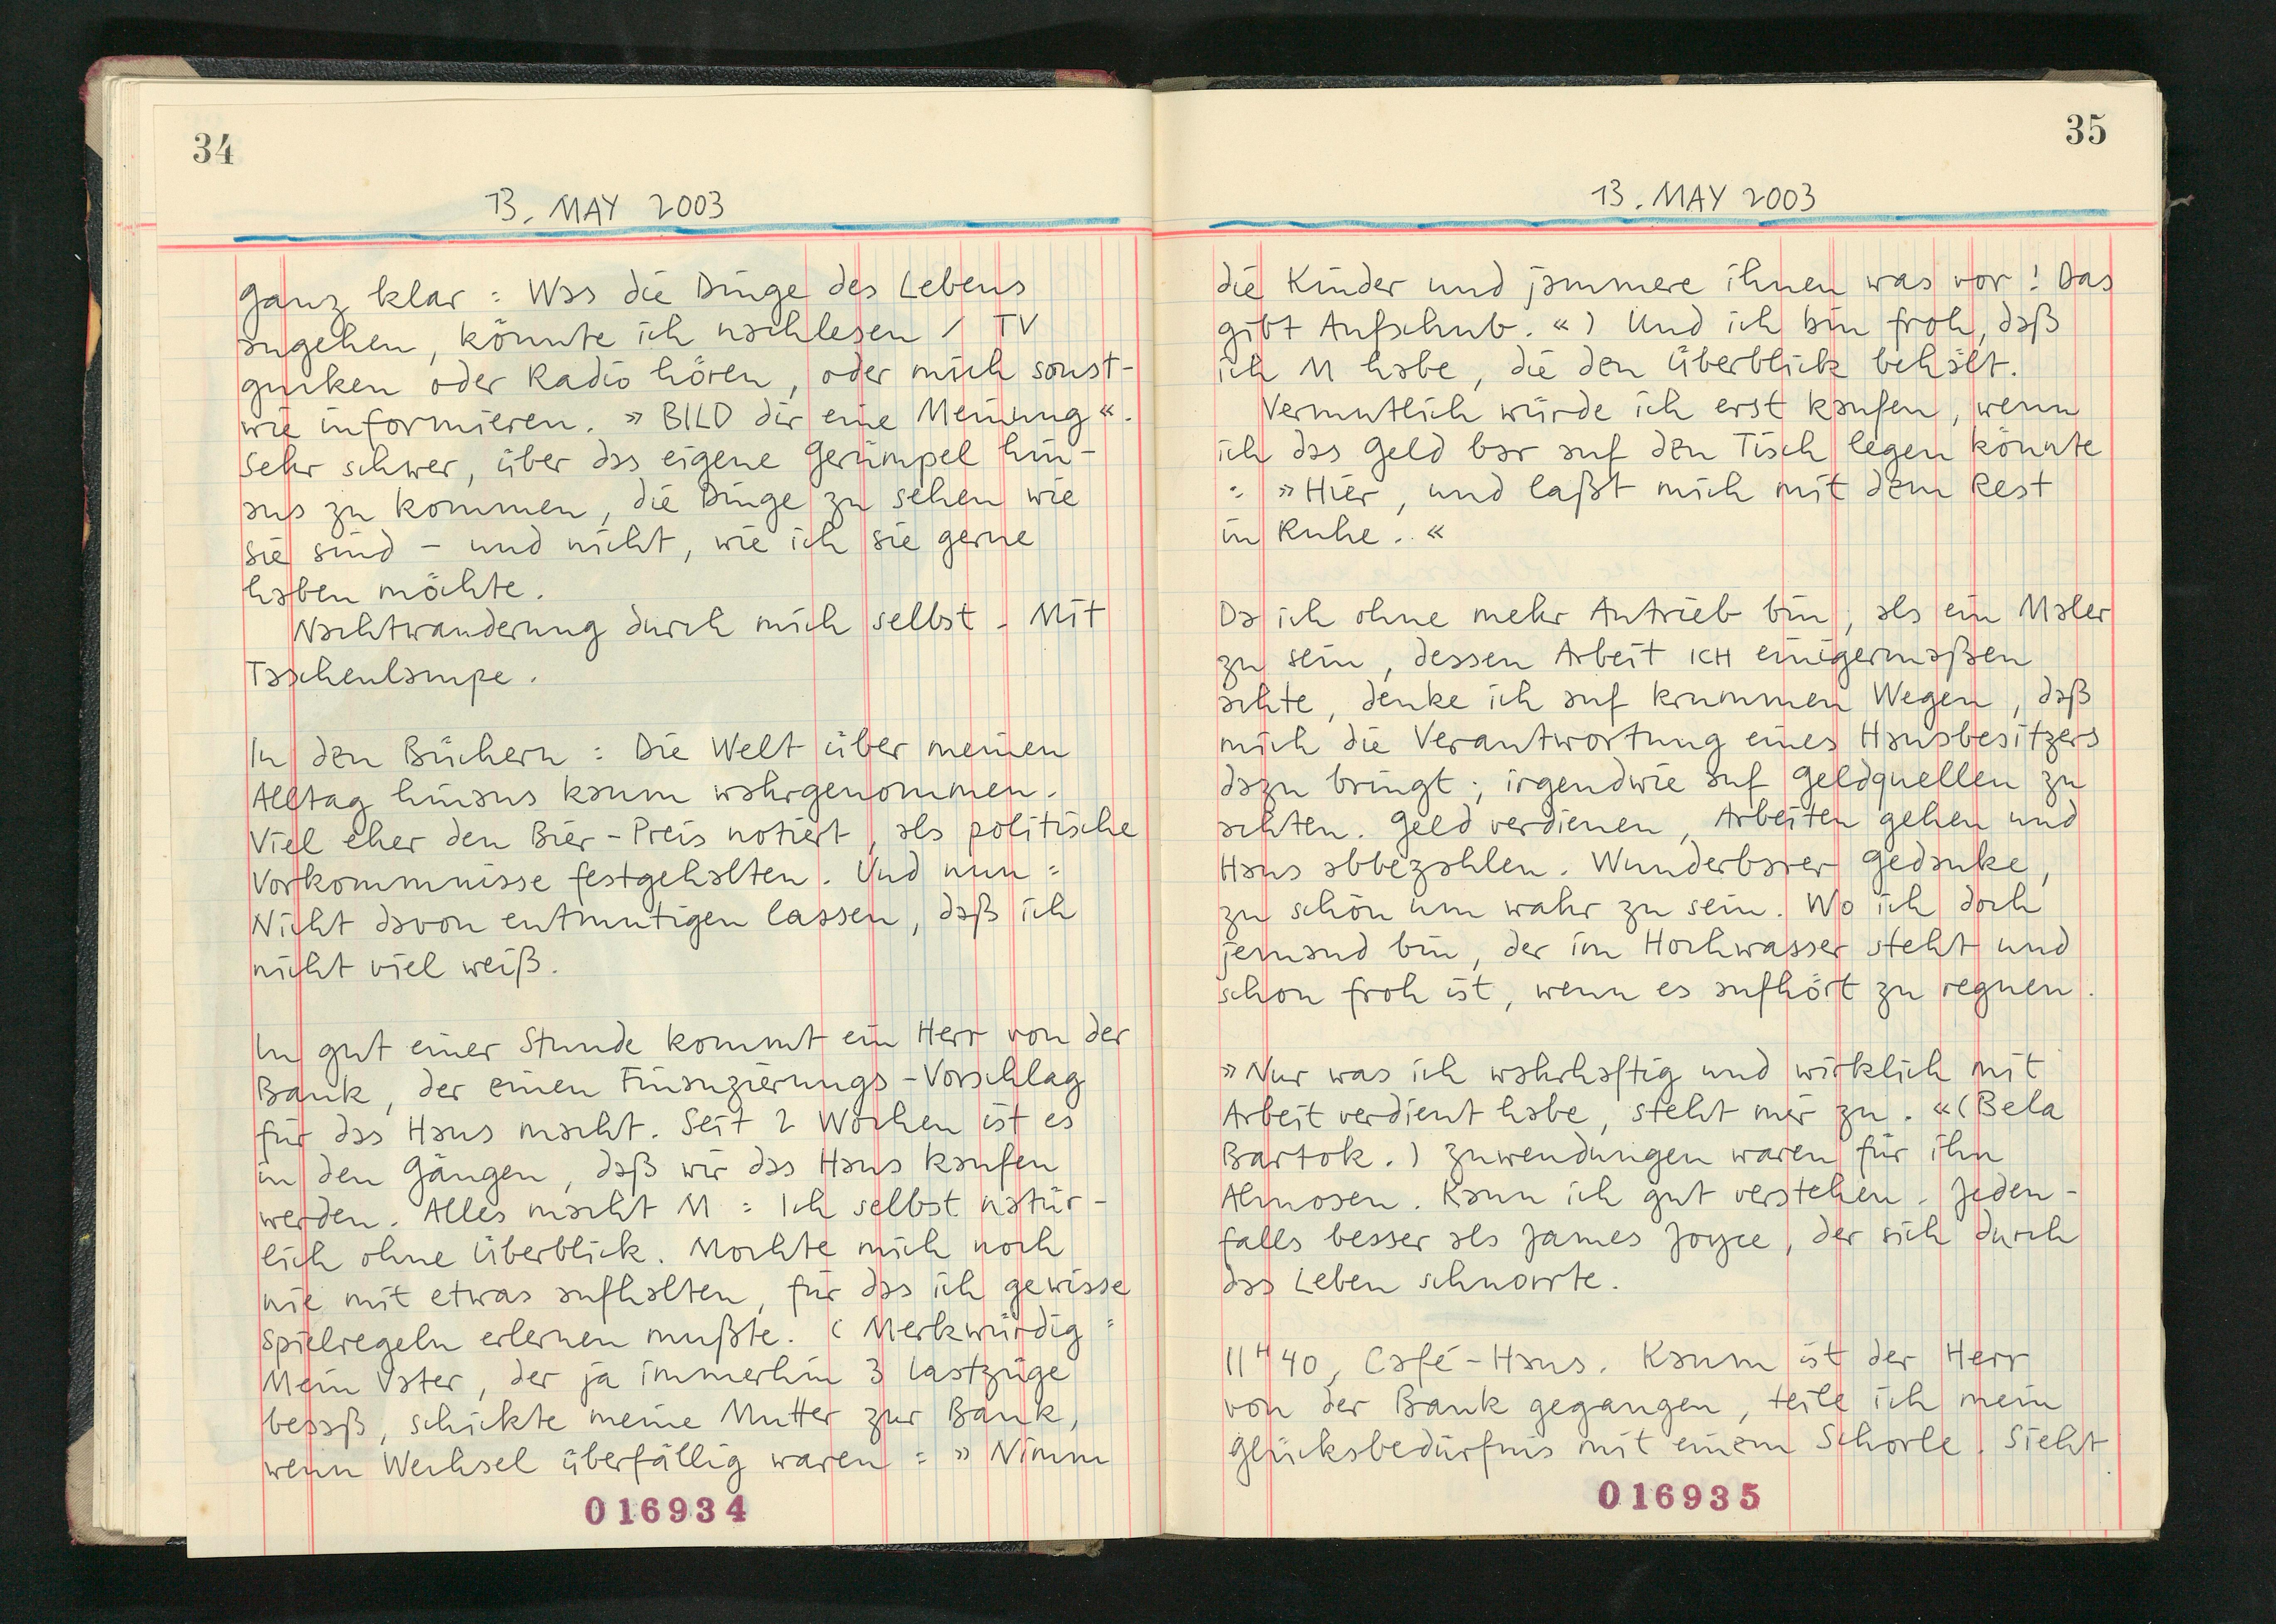 34
13. MAY 2003
Ganz klar : Was die Dinge des Lebens
angehen, könnte ich nachlesen / TV
gucken oder Radio hören, oder mich sonst-
wie informieren. » BILD dir eine Meinung «.
Sehr schwer, über das eigene Gerümpel hin-
aus zu kommen, die Dinge zu sehen wie
sie sind – und nicht, wie ich sie gerne
haben möchte.
Nachtwanderung durch mich selbst. Mit
Taschenlampe.
In den Büchern : Die Welt über meinen
Alltag hinaus kaum wahrgenommen.
Viel eher den Bier-Preis notiert, als politische
Vorkommnisse festgehalten. Und nun :
Nicht davon entmutigen lassen, daß ich
nicht viel weiß.
In gut einer Stunde kommt ein Herr von der
Bank, der einen Finanzierungs-Vorschlag
für das Haus macht. Seit 2 Wochen ist es
in den Gängen, daß wir das Haus kaufen
werden. Alles macht M : Ich selbst natür-
lich ohne Überblick. Mochte mich noch
nie mit etwas aufhalten, für das ich gewisse
Spielregeln erlernen mußte. ( Merkwürdig :
Mein Vater, der ja immerhin 3 Lastzüge
besaß, schickte meine Mutter zur Bank,
wenn Wechsel überfällig waren : » Nimm
016934
35
13. MAY 2003
die Kinder und jammere ihnen was vor ! Das
gibt Aufschub. «) Und ich bin froh, daß
ich M habe, die den Überblick behält.
Vermutlich würde ich erst kaufen, wenn
ich das Geld bar auf den Tisch legen könnte
: » Hier, und laßt mich mit dem Rest
in Ruhe.. «
Da ich ohne mehr Antrieb bin, als ein Maler
zu sein, dessen Arbeit ICH einigermaßen
achte, denke ich auf krummen Wegen, daß
mich die Verantwortung eines Hausbesitzers
dazu bringt ; irgendwie auf Geldquellen zu
achten. Geld verdienen, Arbeiten gehen und
Haus abbezahlen. Wunderbarer Gedanke,
zu schön um wahr zu sein. Wo ich doch
jemand bin, der im Hochwasser steht und
schon froh ist, wenn es aufhört zu regnen.
» Nur was ich wahrhaftig und wirklich mit
Arbeit verdient habe, steht mir zu. « (Bela
Bartok.) Zuwendungen waren für ihn
Almosen. Kann ich gut verstehen. Jeden-
falls besser als James Joyce, der sich durch
das Leben schnorrte.
11 H 40, Café-Haus. Kaum ist der Herr
von der Bank gegangen, teile ich mein
Glücksbedürfnis mit einem Schorle. Sieht
016935